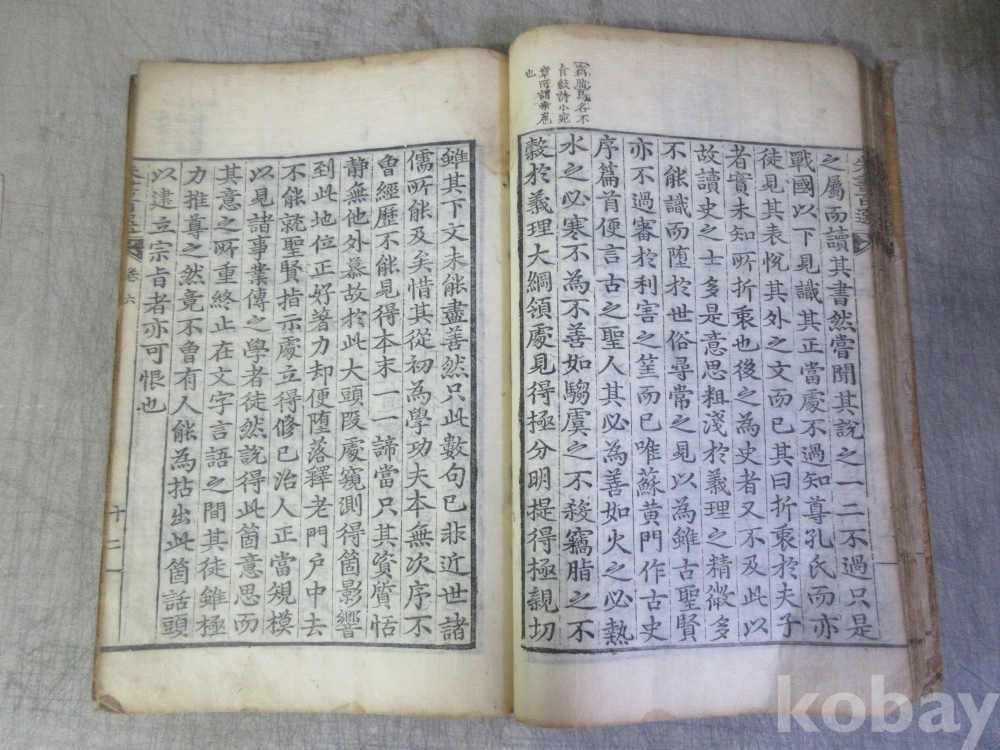 竊脂鳥名不
食穀詩小宛
章所謂桑扈
也
之屬而讀其書然嘗聞其說之一二不過只是
戰國以下見識其正當處不過知尊孔氏而亦
徒見其表悅其外之文而已其曰折衷於夫子
者實未知所折衷也後之為史者又不及此以
故讀史之士多是意思粗淺於義理之精微多
不能識而墮於世俗尋常之見以為雖古聖賢
亦不過審於利害之筭而已唯蘇黃門作古史
序篇首便言古之聖人其必為善如火之必熱
水之必寒不為不善如騶虞之不殺竊脂之不
穀於義理大綱領處見得極分明提得極親切
雖其下文未能盡善然只此數句已非近世諸
儒所能及矣惜其從初為學功夫本無次序不
曾經歷不能見得本末一一諦當只其資質恬
静無他外慕故於此大頭段處窺測得箇影響
到此地位正好著力却便墮落釋老門戶中去
不能就聖賢指示處立得修己治人正當規模
以見諸事業傳之學者徒然說得此箇意思而
其意之所重終止在文字言語之間其徒雖極
力推尊之然竟不曾有人能為拈出此箇話頭
以建立宗旨者亦可恨也
卷六
十二
kobay